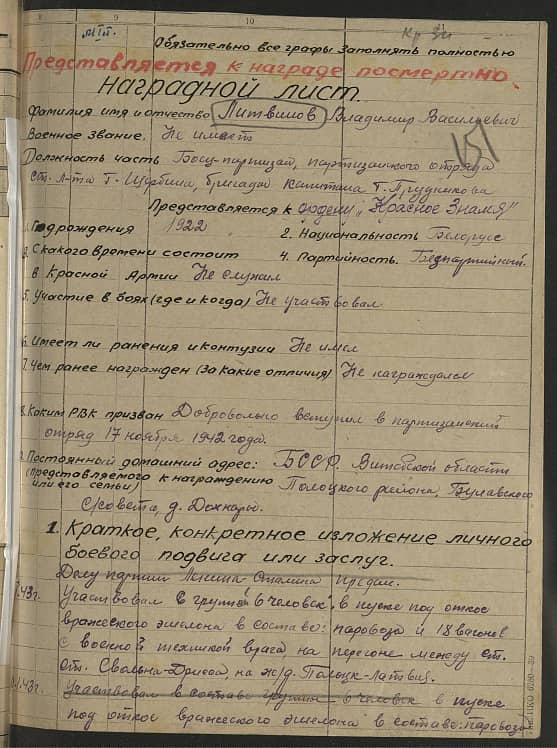 8 9 10
Обязательно все графы заполнять полностью
Представляется к награде посмертно.
наградной лист.
Фамилия имя и отчество Литвинов Владимир Васильевич
Военное звание. Не имеет
151
Должность часть Боец-партизан, партизанского отряда
ст. л-та т. Щербина, бригады капитана т. Прудникова
Представляется к ордену „Красное Знамя"
1. Год рождения 1922 2. Национальность Белорус
3. С какого времени состоит 4. Партийность. Беспартийный.
в Красной Армии Не служил
5. Участие в боях (где и когда) Не участвовал
6. Имеет ли ранения и контузии Не имел
7. Чем ранее награжден (За какие отличия) Не награждался
8. Каким РВК призван Добровольно вступил в партизанский
отряд 17 ноября 1942 года.
9. Постоянный домашний адрес: БССР. Витебской области
(представляемого к награждению Полоцкого района, Булавского
или его семьи)
с/совета, д.
1. Краткое, конкретное изложение личного
боевого подвига или заслуг.
Делу партии Ленина-Сталина предан.
43г. Участвовал в группе 6 человек в пуске под откос
вражеского эшелона в составе: паровоза и 18 вагонов
с военной техникой врага на перегоне между ст.
ст. Свольна-Дрисса на ж/д Полоцк-Латвия.
43г. Участвовал в составе группы 6 человек в пуске
под откос вражеского эшелона в составе: паровоза